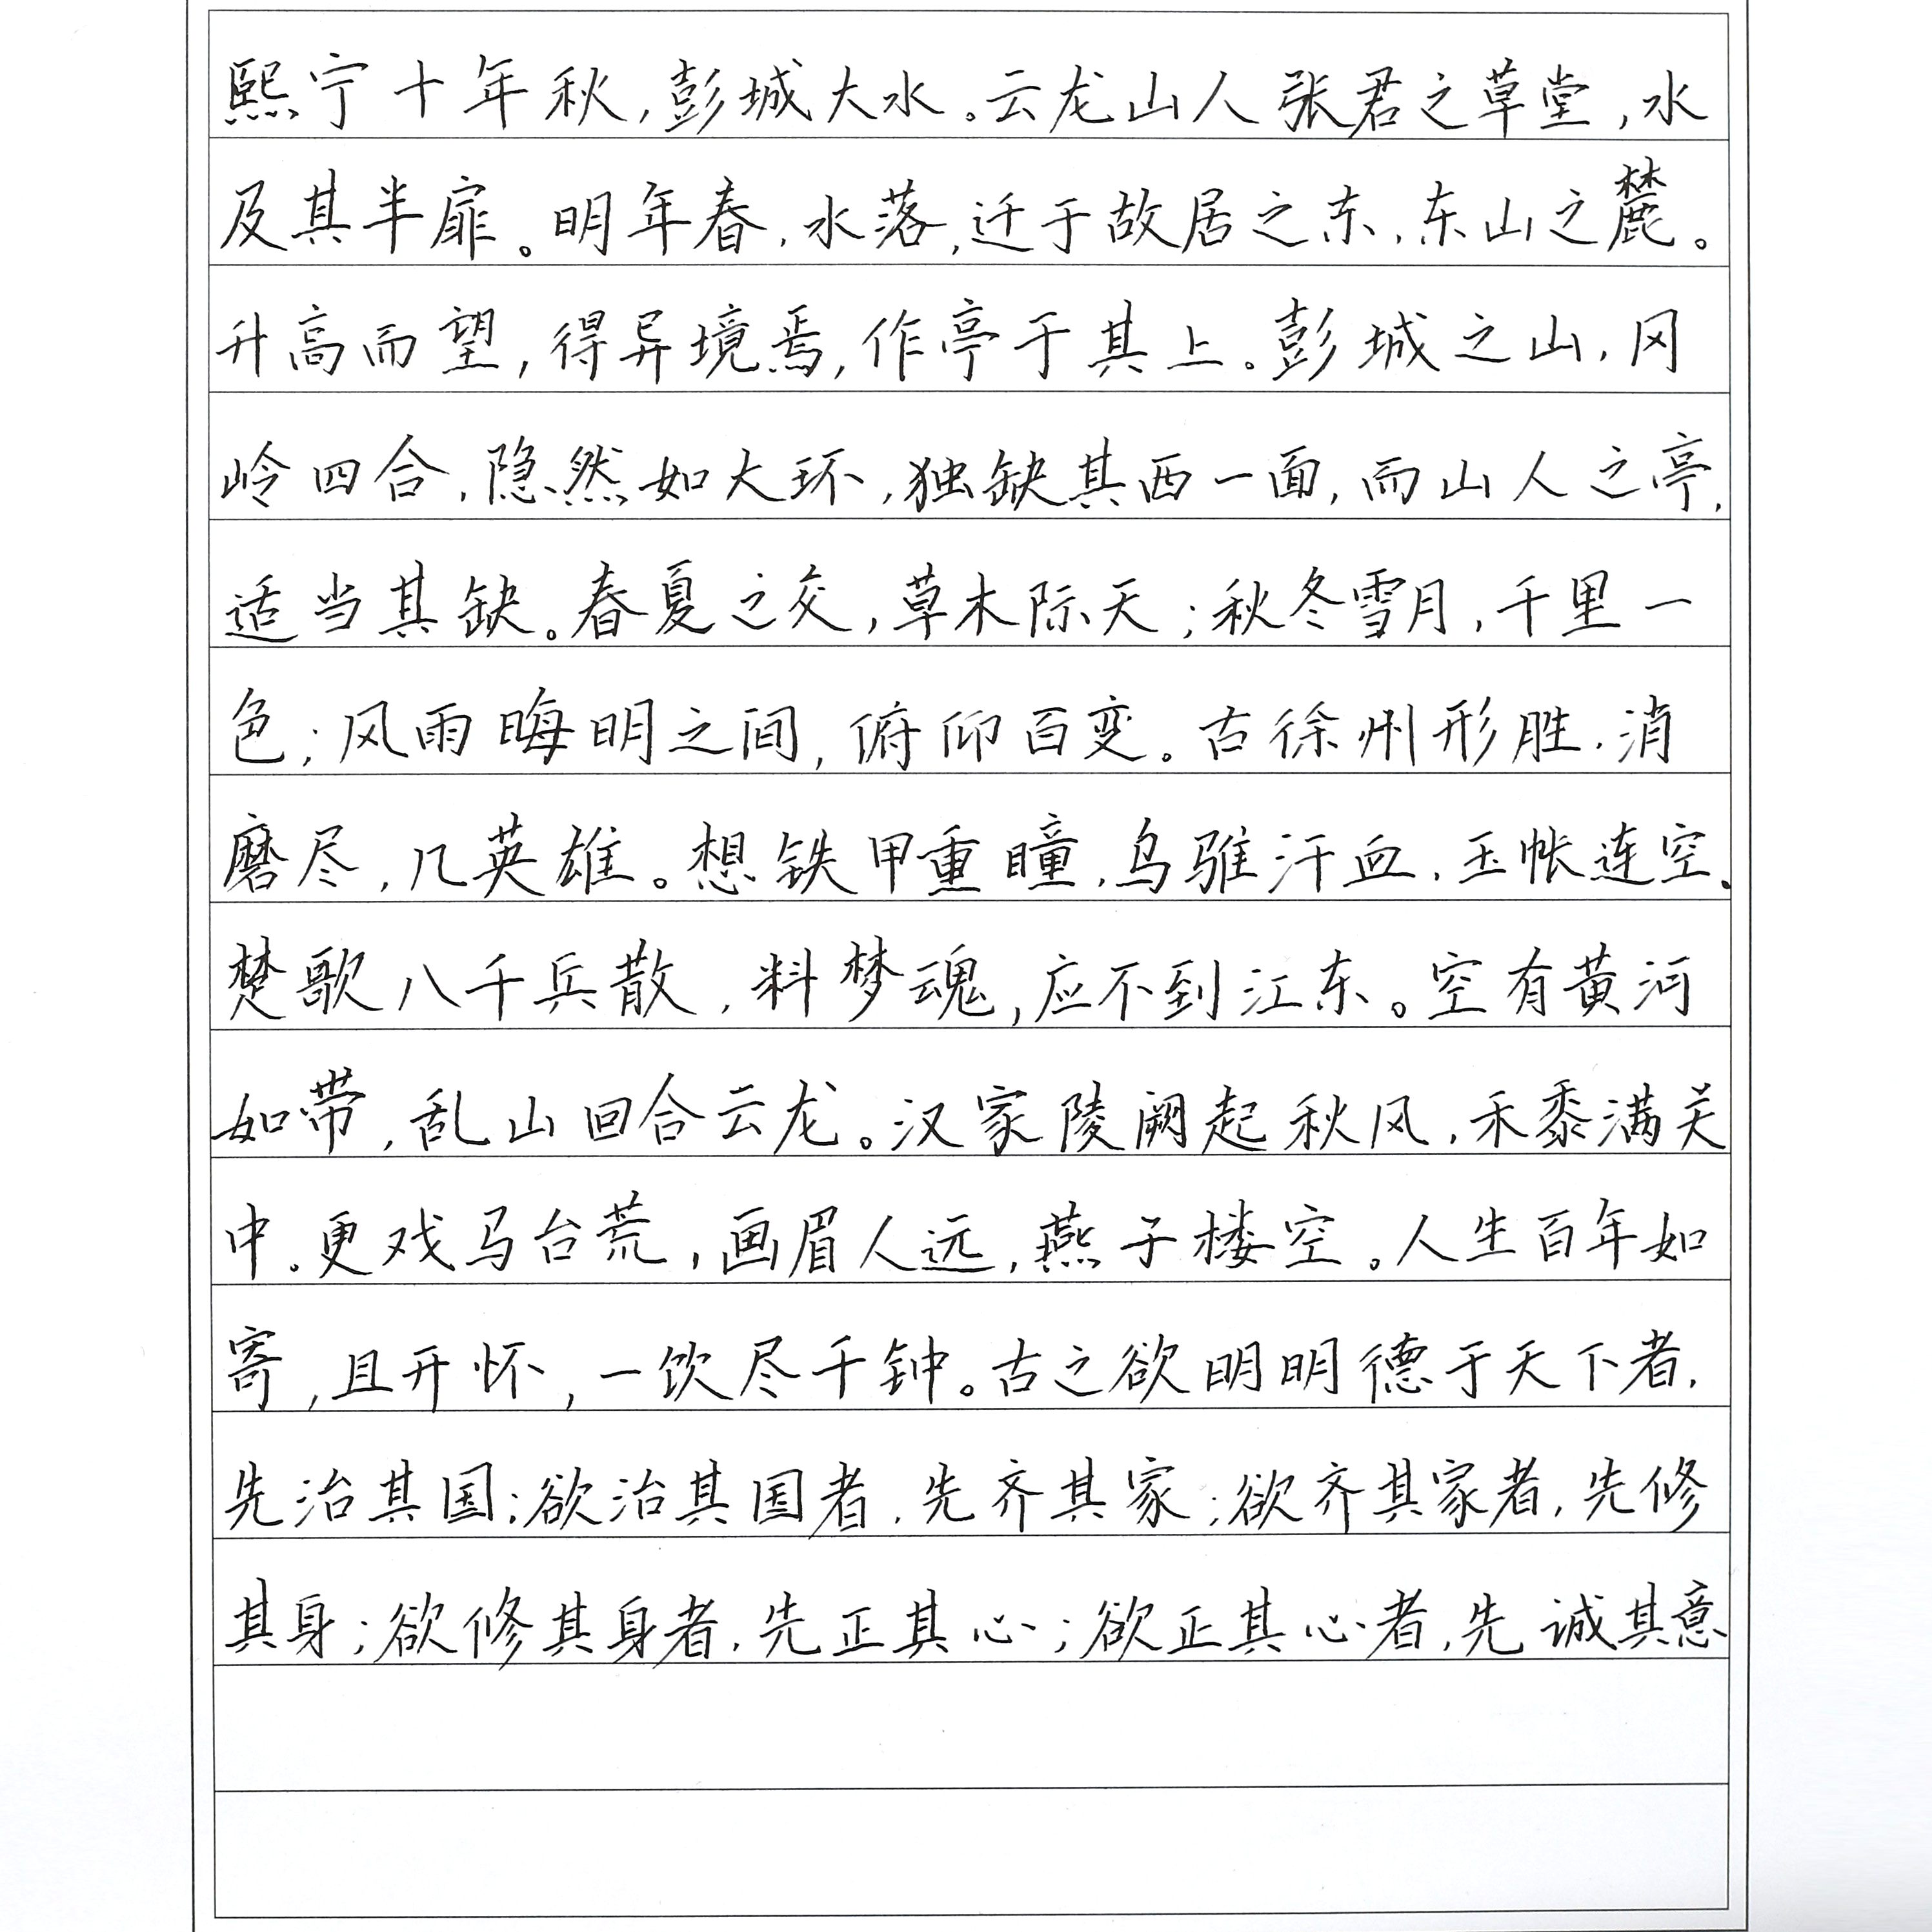 熙宁十年秋,彭城大水。云龙山人张君之草堂,水
及其半扉。明年春,水落,迁于故居之东,东山之麓。
升高而望,得异境焉,作亭于其上。彭城之山,冈
岭四合,隐然如大环,独缺其西一面,而山人之亭,
适当其缺。春夏之交,草木际天;秋冬雪月,千里一
色;风雨晦明之间,俯仰百变。古徐州形胜,消
磨尽,几英雄。想铁甲重瞳,乌骓汗血,玉帐连空。
楚歌八千兵散,料梦魂,应不到江东。空有黄河
如带,乱山回合云龙。汉家陵阙起秋风,禾黍满关
中。更戏马台荒,画眉人远,燕子楼空。人生百年如
寄,且开怀,一饮尽千钟。古之欲明明德于天下者,
先治其国;欲治其国者,先齐其家;欲齐其家者,先修
其身;欲修其身者,先正其心;欲正其心者,先诚其意